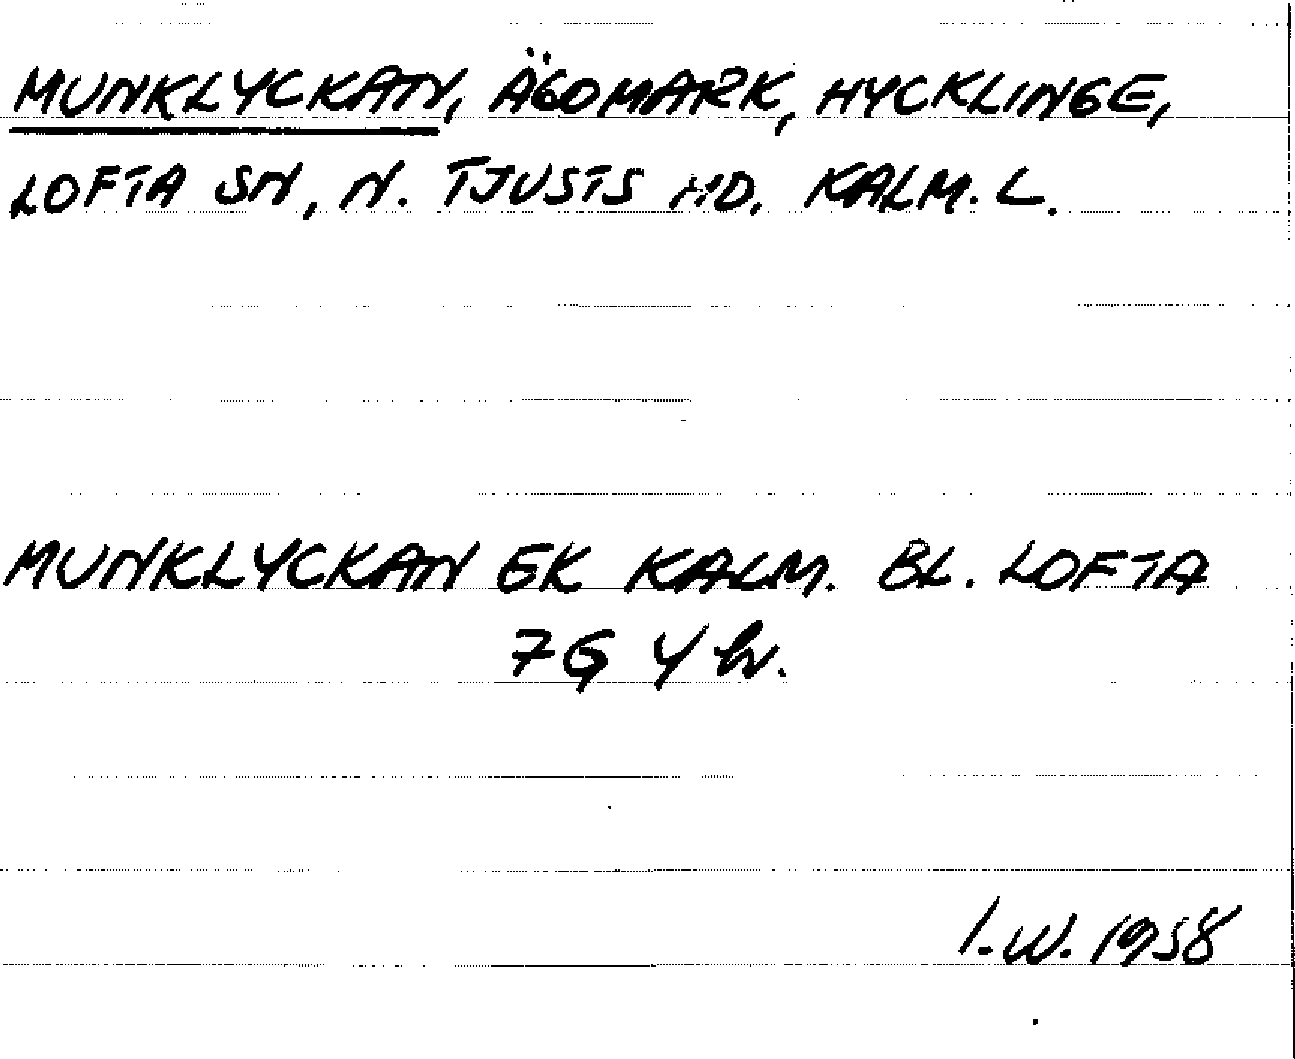 MUNKLYCKAN, ÄGOMARK, HYCKLINGE,
LOFTA SN, N. TJUSTS HD. KALM. L.
MUNKLYCKAN EK KALM. BL. LOFTA
7G Y hv.
I.W. 1958